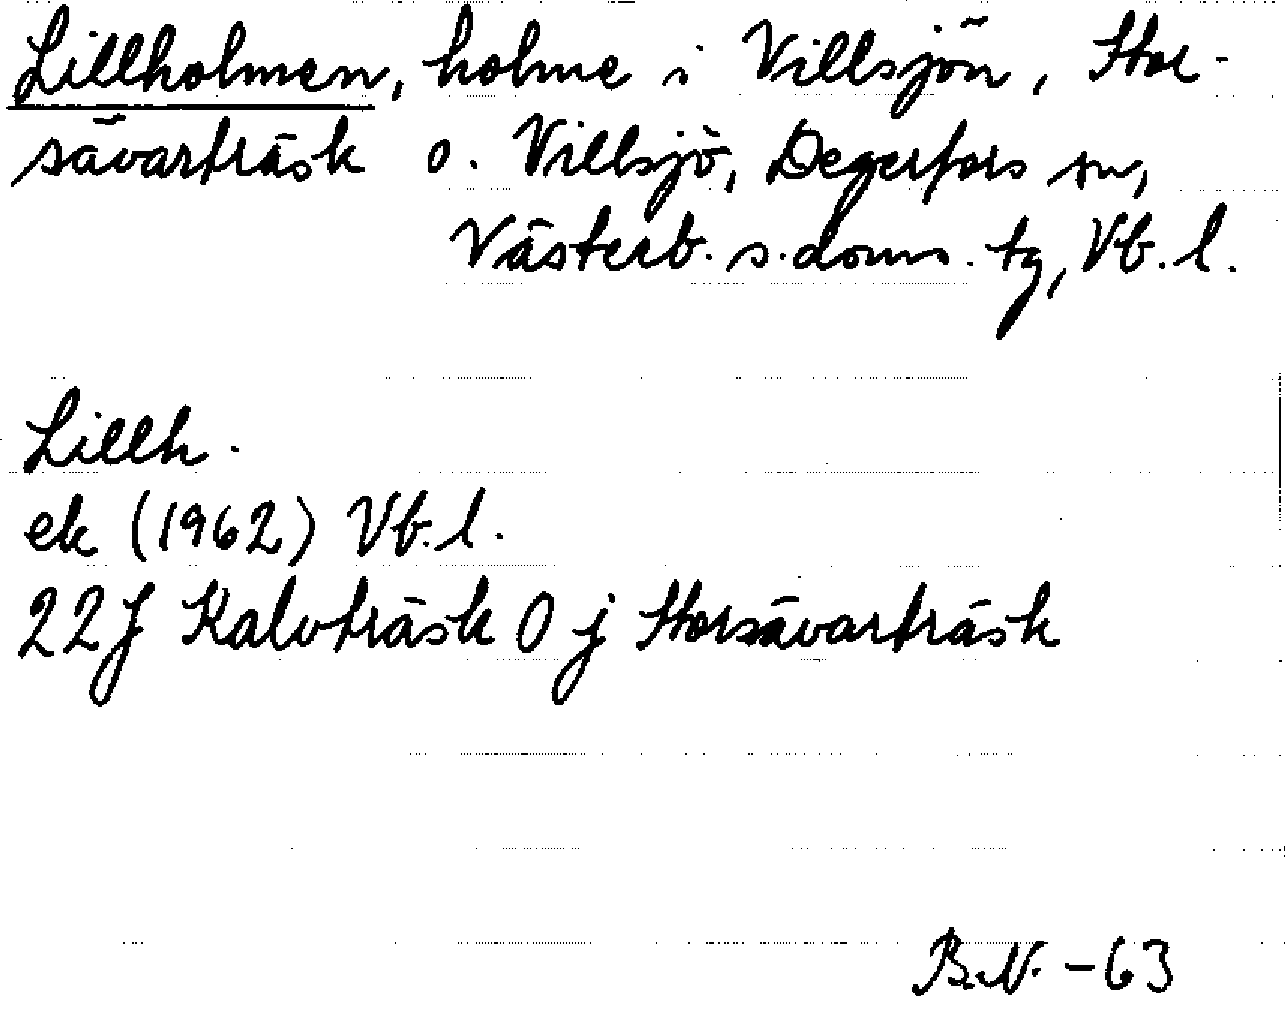 Lillholmen, holme i Villsjön, Stor-
sävarträsk o. Villsjö, Degerfors sn,
Västerb. s. doms. tg, Vb. l.
Lillh.
ek (1962) Vb. l.
22J Kalvträsk 0 j Storsävarträsk
B.N. -63